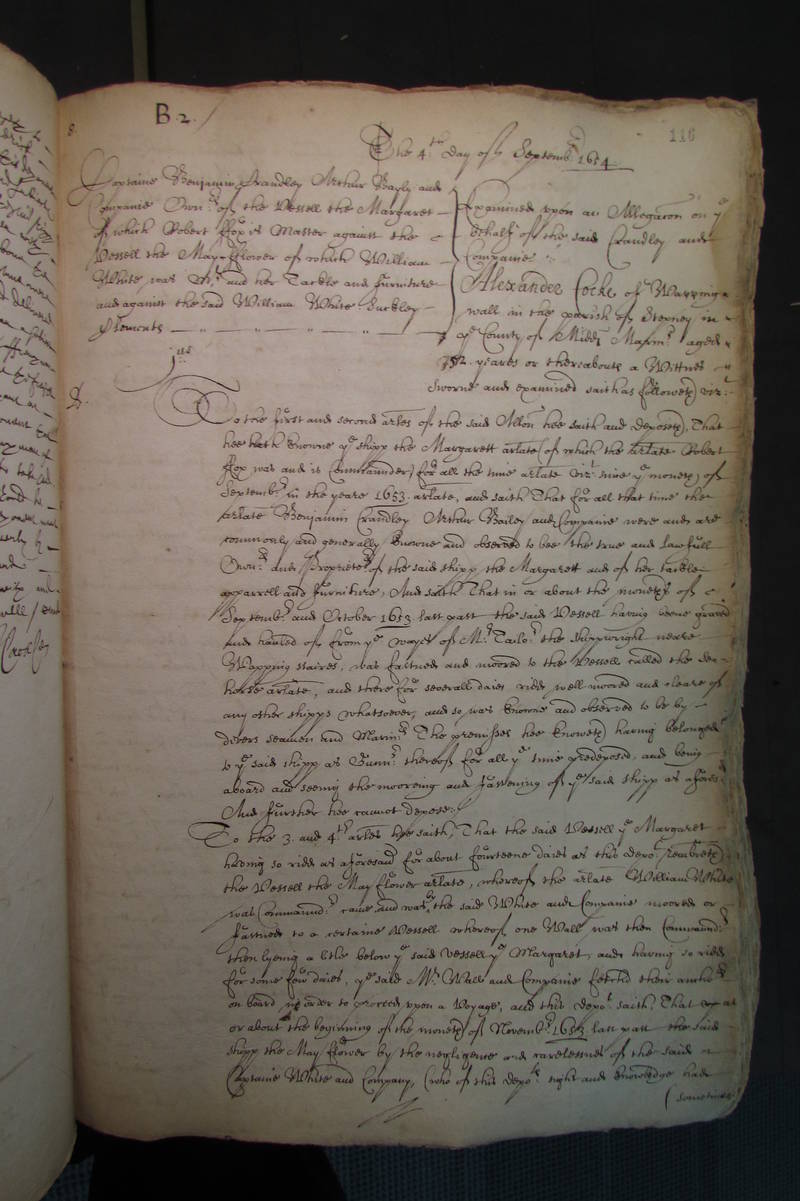 B 2.
116
8.
The 4th Day of Septembr 1654
Captaine Benjamin Crandley Arthur Bayly and
Companie Ownrs of the Vessell the Margaret
of which Robert ffox is Master against the
Vessell the May-flower of which William
White was Mr and her Tackle and furniture
and against the said William White Buckley
Clements
Examined upon an Allegacon on ye
behalfe of the said Crandley and
Companie
Alexander Cocke of Wapping
wall in the parish of Stepney in
ye County of Middx Marinr aged
52. yeares or thereabouts a Wittnes
sworne and examined saith as followeth vizt
1us
To the first and second arles of the said Allon hee saith and deposeth, That
hee hath knowne ye shipp the Margarett arlate (of which the arlate Robert
ffox was and is Commaunder) for all the time arlate vizt since ye moneth of
Septembr in the yeare 1653. arlate, and saith That for all that time the
arlate Benjamin Crandley Arthur Bailey and Companie were and are
commonly and generally knowne and observed to bee the true and lawfull
Ownrs and Proprietrs of the said shipp the Margarett and of her tackle
apparrell and furniture, And saith That in or about the moneths of
Septembr and October 1653 last past the said Vessell having beene graved
and hauled of from ye wayes of Mr Tailor the shipwright neare
Wapping staires, was fastned and moored to the Vessell called the Sea-
horse arlate, and there for severall daies ridd well moored and cleare of
any other shipps whatsoever, and so was knowne and observed to be by
divers seamen and Marinrs The premisses hee knoweth having belonged
to ye said shipp as Gunnr thereof for all ye time predeposed, and being
aboard and seeing the mooreing and fastening of ye said shipp as aforesd
And further hee cannot depose.
To the 3. and 4th arles hee saith, That the said Vessell ye Margaret
having so ridd as aforesaid for about fourteene daies as this depot remembreth
the Vessell the May flower arlate, whereof the arlate William White
was Commaundr came and was by the said White and Companie moored or
fastned to a certaine Vessell whereof one Wall was then Commandr
then lyeing a litle below ye said vessell ye Margaret, and having so ridd
for some few daies, ye said Mr Wall and Companie fetchd their anchors
on board in order to proceed upon a Voyage, and this depot saith, That at
or about the beginning of the moneth of Novembr 1653 last past the said
shipp the May flower by the negligence and carelessnes of the said
Captaine White and Company, (who of this depots sight and knowledge had
(sometimes